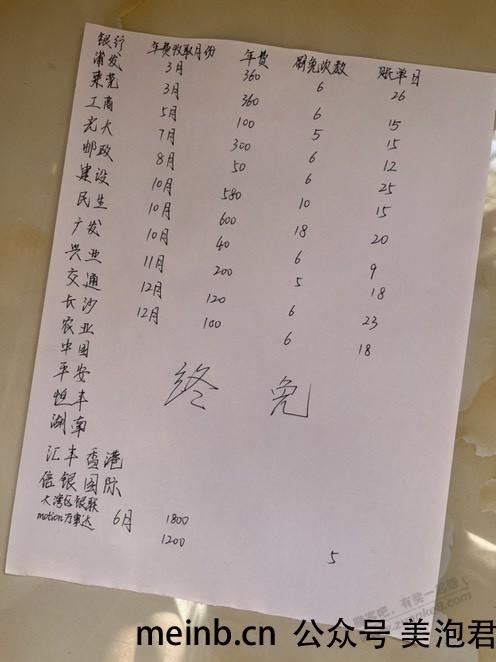 银行 年费收取月份 年费 刷免次数 账单日
浦发 3月 360 6 26
東莞 3月 360 6 15
工商 5月 100 5 15
光大 7月 300 6 12
邮政 8月 50 6 25
建设 10月 580 10 15
民生 10月 600 18 20
广发 10月 40 6 9
兴业 11月 200 5 18
交通 12月 120 6 23
长沙 12月 100 6 18
农业
中国
平安 终免
恒丰
湖南
汇丰香港
信银国际
大湾区银联 6月 1800
motion万事达 1200 5
客吧,有奖一起赚!
meinb.cn 公众号 美泡君